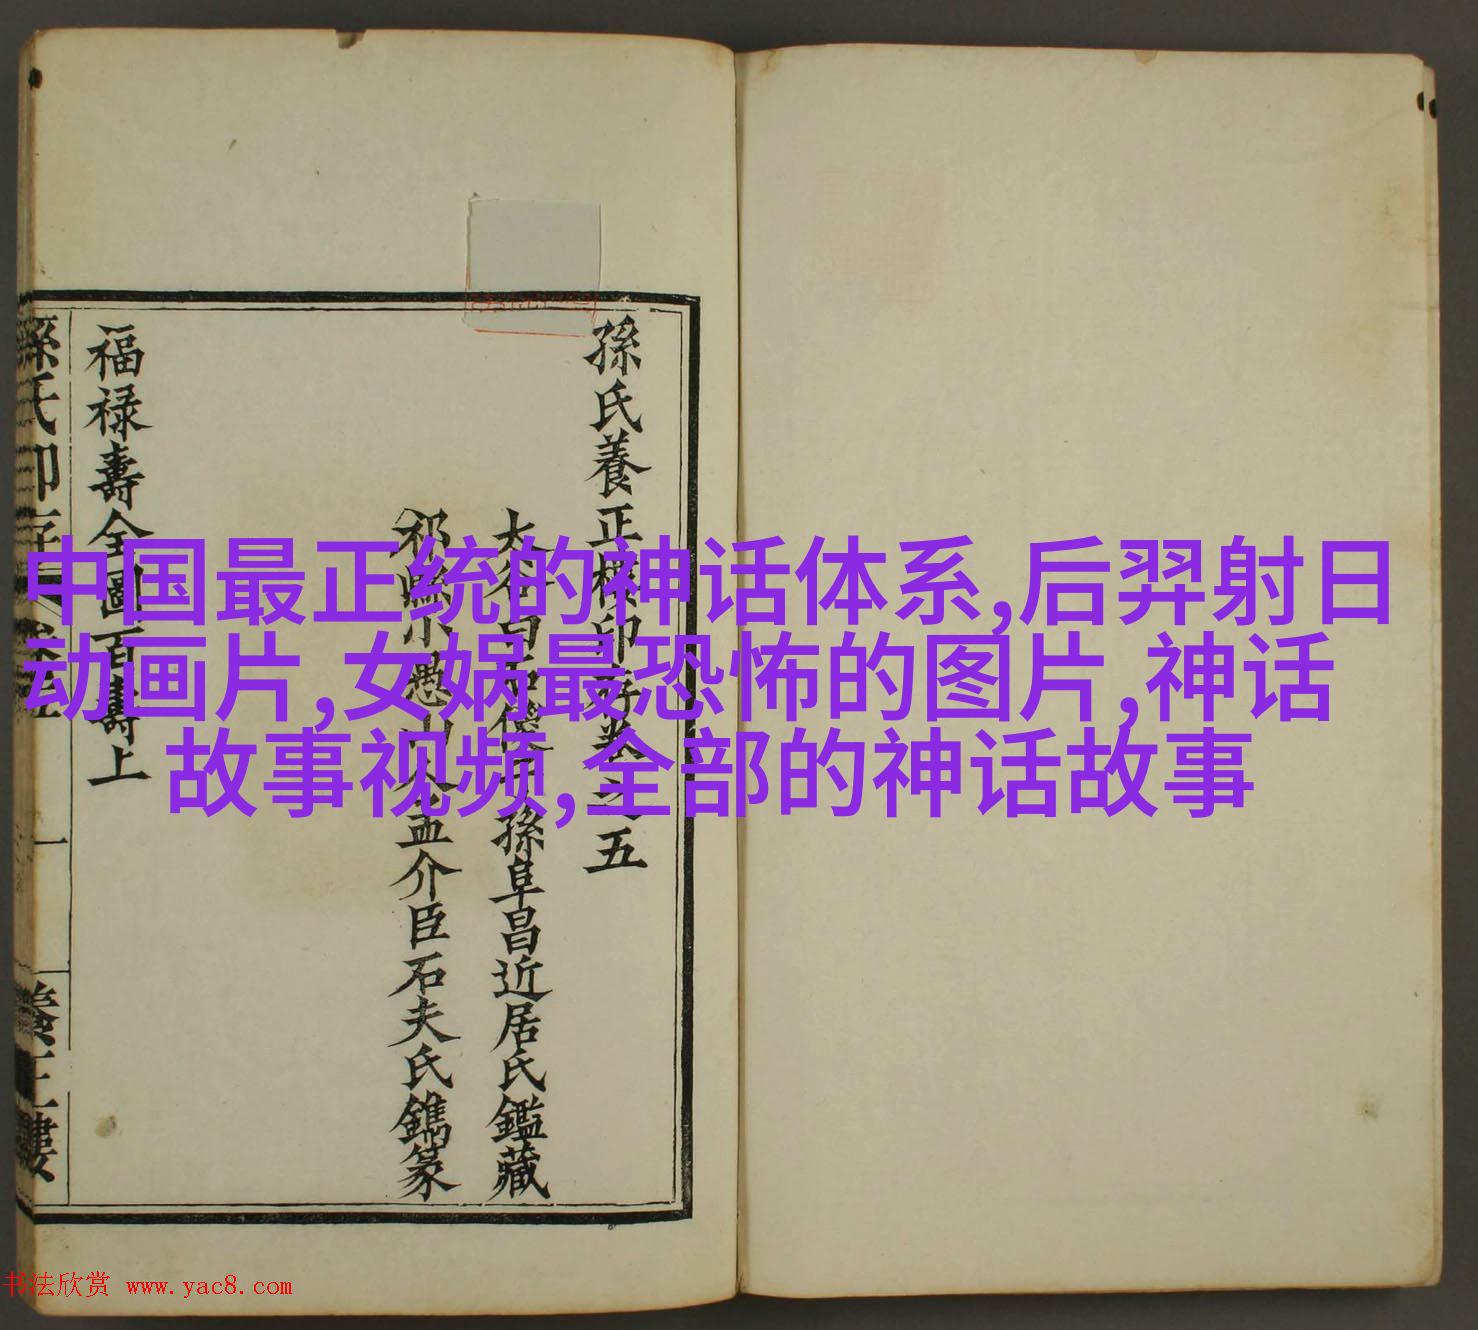 孫氏養正樓印存卷之五
孫阜昌近居氏鑑藏
孟介臣石夫氏鐫篆
福禄壽全圖百壽上
中国最正统的神话体系,后羿射日
动画片,女娲最恐怖的图片,神话
故事视频,全部的神话故事
书法欣赏 www.yac8.com